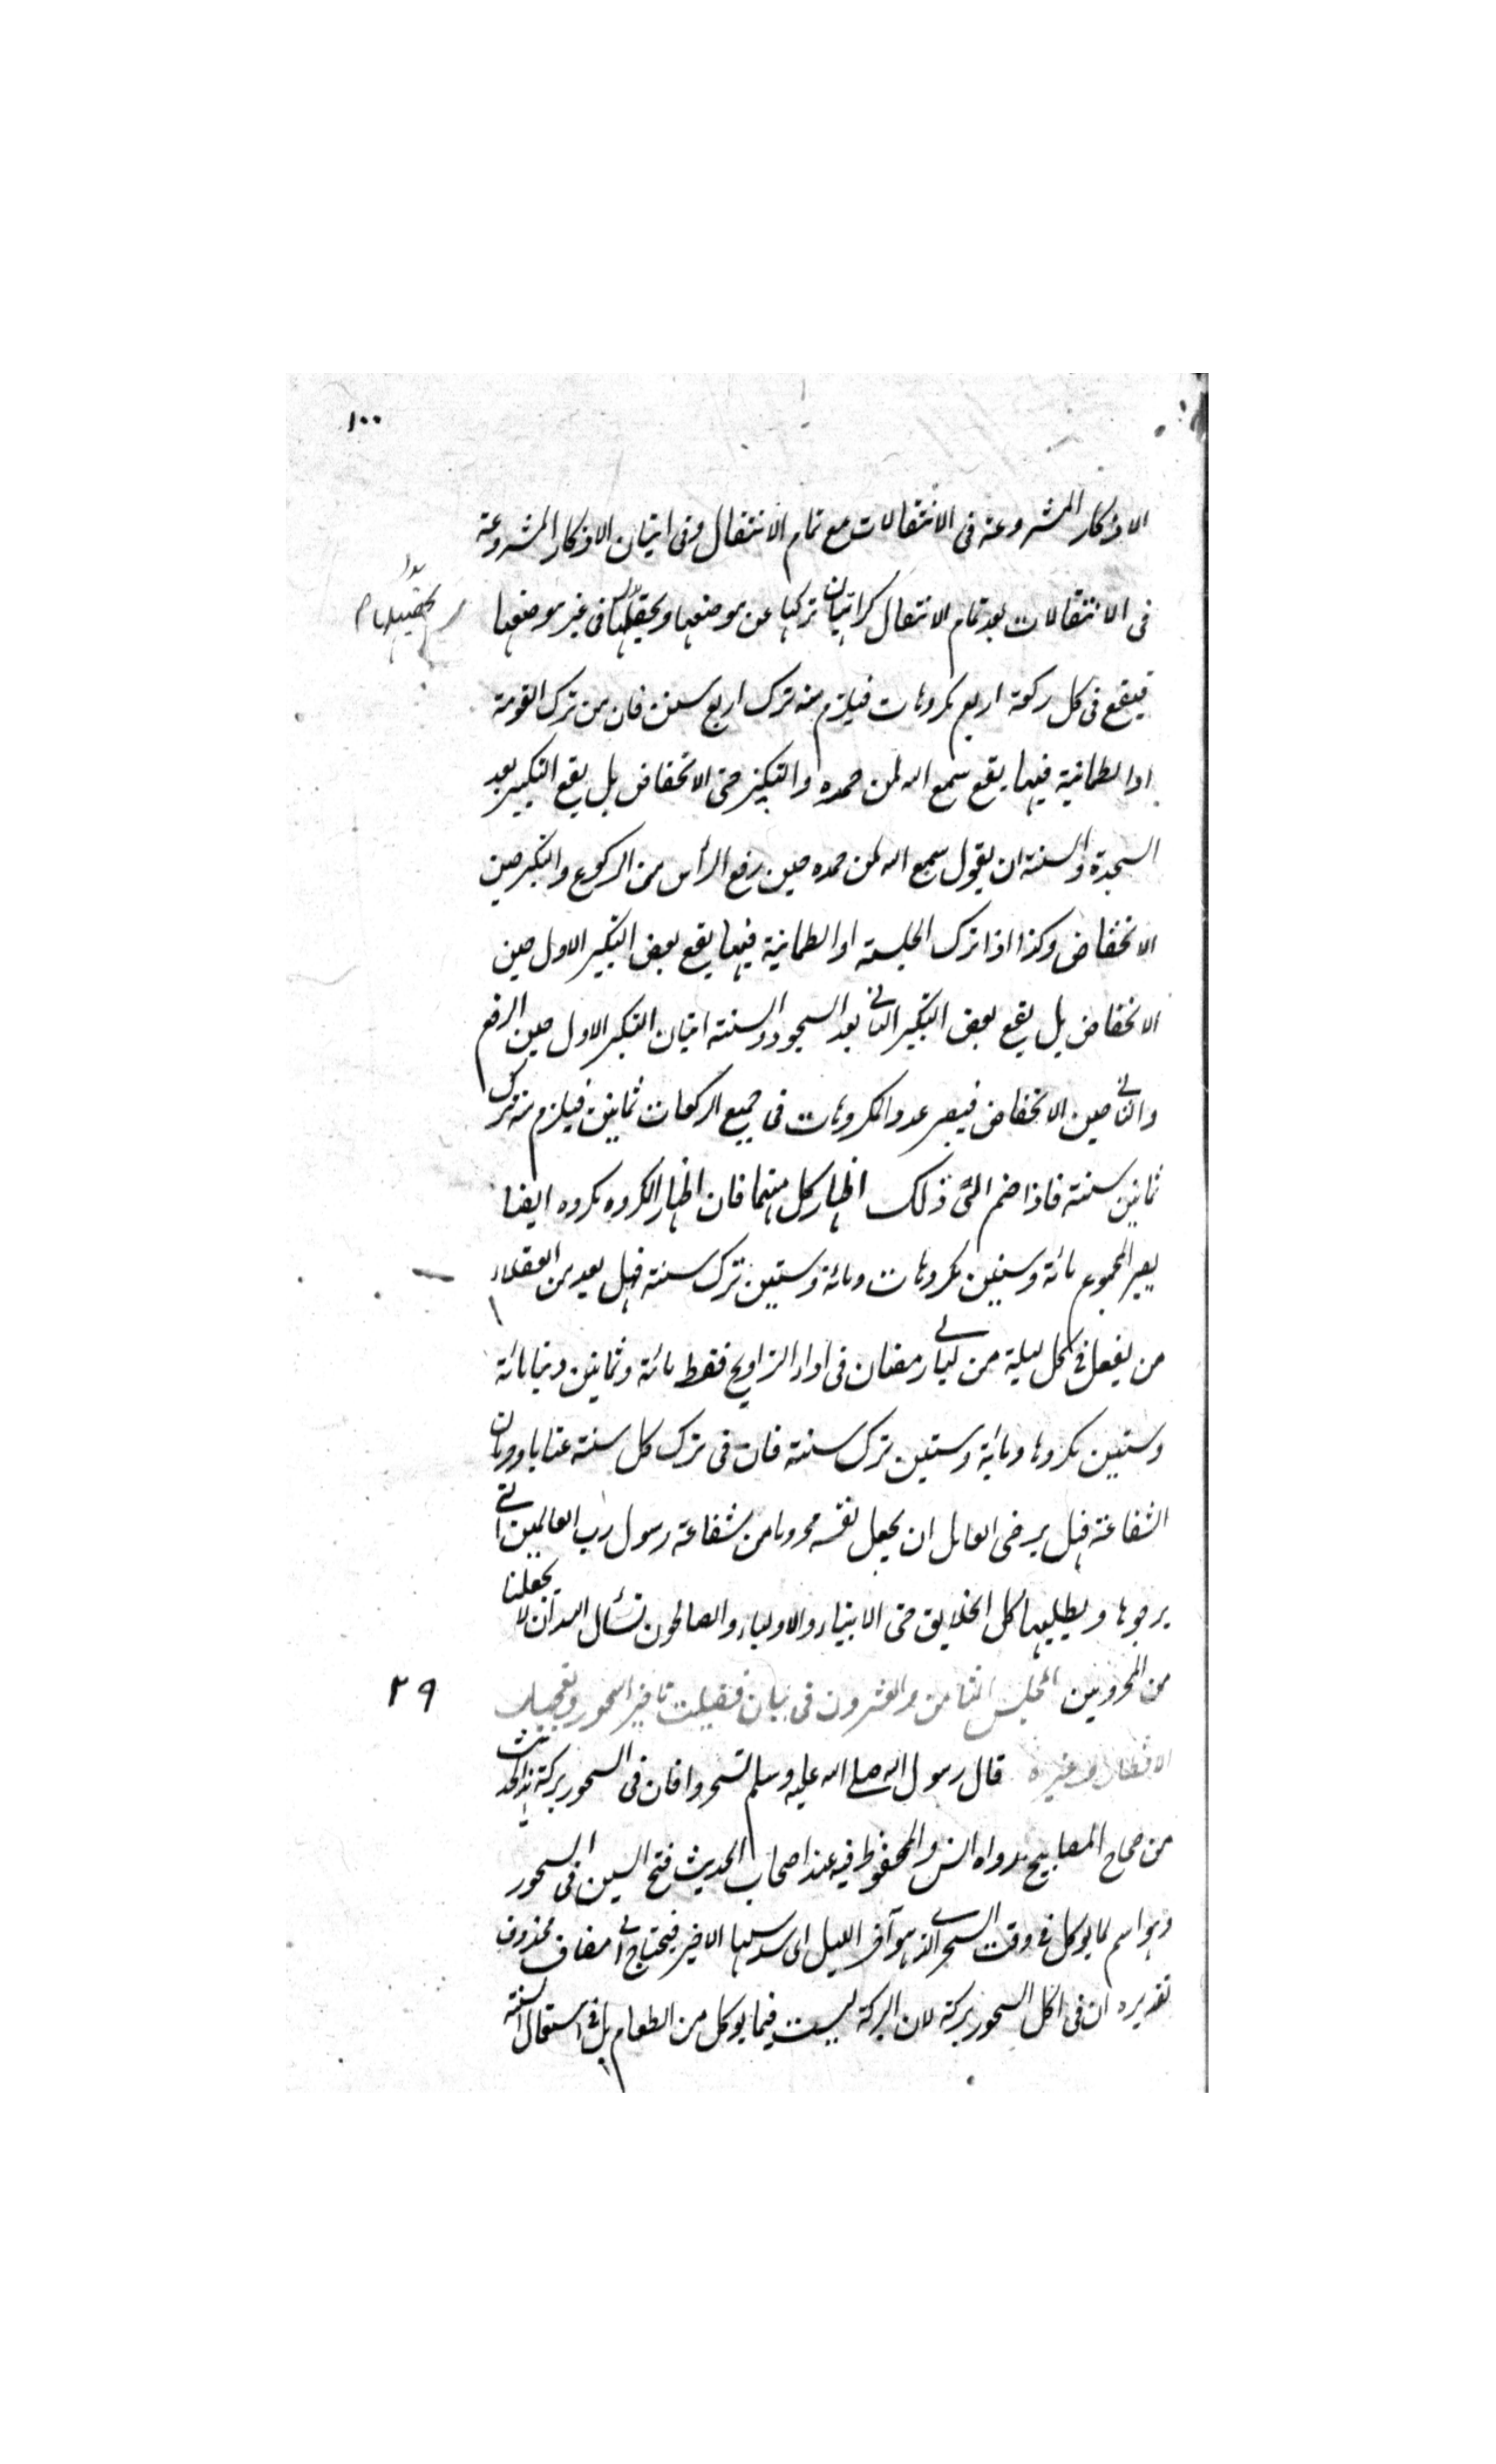 ١٠٠
الاذكار المشروعة فى الانتقالات مع تمام الانتقال وفى اتيان الاذكار المشروعة
فى الانتقالات بعد تمام الانتقال كراهتان تركها عن موضعها وتحصيلها فى غير موضعها
تحصيلها م
فيقع فى كل ركعة اربع مكروهات فيلزم منه ترك اربع سنن فان من ترك القومة
او الطمانية فيها يقع سمع الله لمن حمده والتكبير حتى الانخفاض بل يقع التكبير بعد
السجدة والسنة ان يقول سمع الله لمن حمده حين رفع الرأس من الركوع والتكبير حين
الانخفاض وكذا اذا ترك الجلسة او الطمانية فيها يقع بعض التكبير الاول حين
الانخفاض بل يقع بعض التكبير الثانى بعد السجود والسنة اتيان التكبير الاول حين الرفع
والثانى حين الانخفاض فيصير عدد المكروهات فى جميع الركعات ثمانين فيلزم منه ترك
ثمانين سنة فاذا ضم الى ذلك اظهار كل منهما فان اظهار المكروه مكروه ايضا
يصير المجموع مائة وستين مكروهات ومائة وستين ترك سنة فهل يعد من العقلاء
من يفعل فى كل ليلة من ليالى رمضان فى اداء التراويح فقط مائة وثمانين ذنبا مائة
وستين مكروها ومائة وستين ترك سنة فان فى ترك كل سنة عتابا وحرمان
الشفاعة فهل يرضى العاقل ان يجعل نفسه محروما من شفاعة رسول رب العالمين التى
يرجوها ويطلبها كل الخلايق حتى الانبياء والاولياء والصالحون نسأل الله ان لا يجعلنا
من المحرومين المجلس الثامن والعشرون فى بيان فضيلت تاخير السحور وتعجيل
٢٩
الافطار وغيره قال رسول الله صلى الله عليه وسلم تسحروا فان فى السحور بركة هذا الحديث
من صحاح المصابيح رواه انس والمحفوظ فيه عند اصحاب الحديث فتح السين فى السحور
وهو اسم لما يوكل فى وقت السحر الذى هو آخر الليل الى سدسها الاخير فيحتاج الى مضاف محذوف
تقديره ان فى اكل السحور بركة لان البركة ليست فيما يوكل من الطعام بل فى استعمال السنة